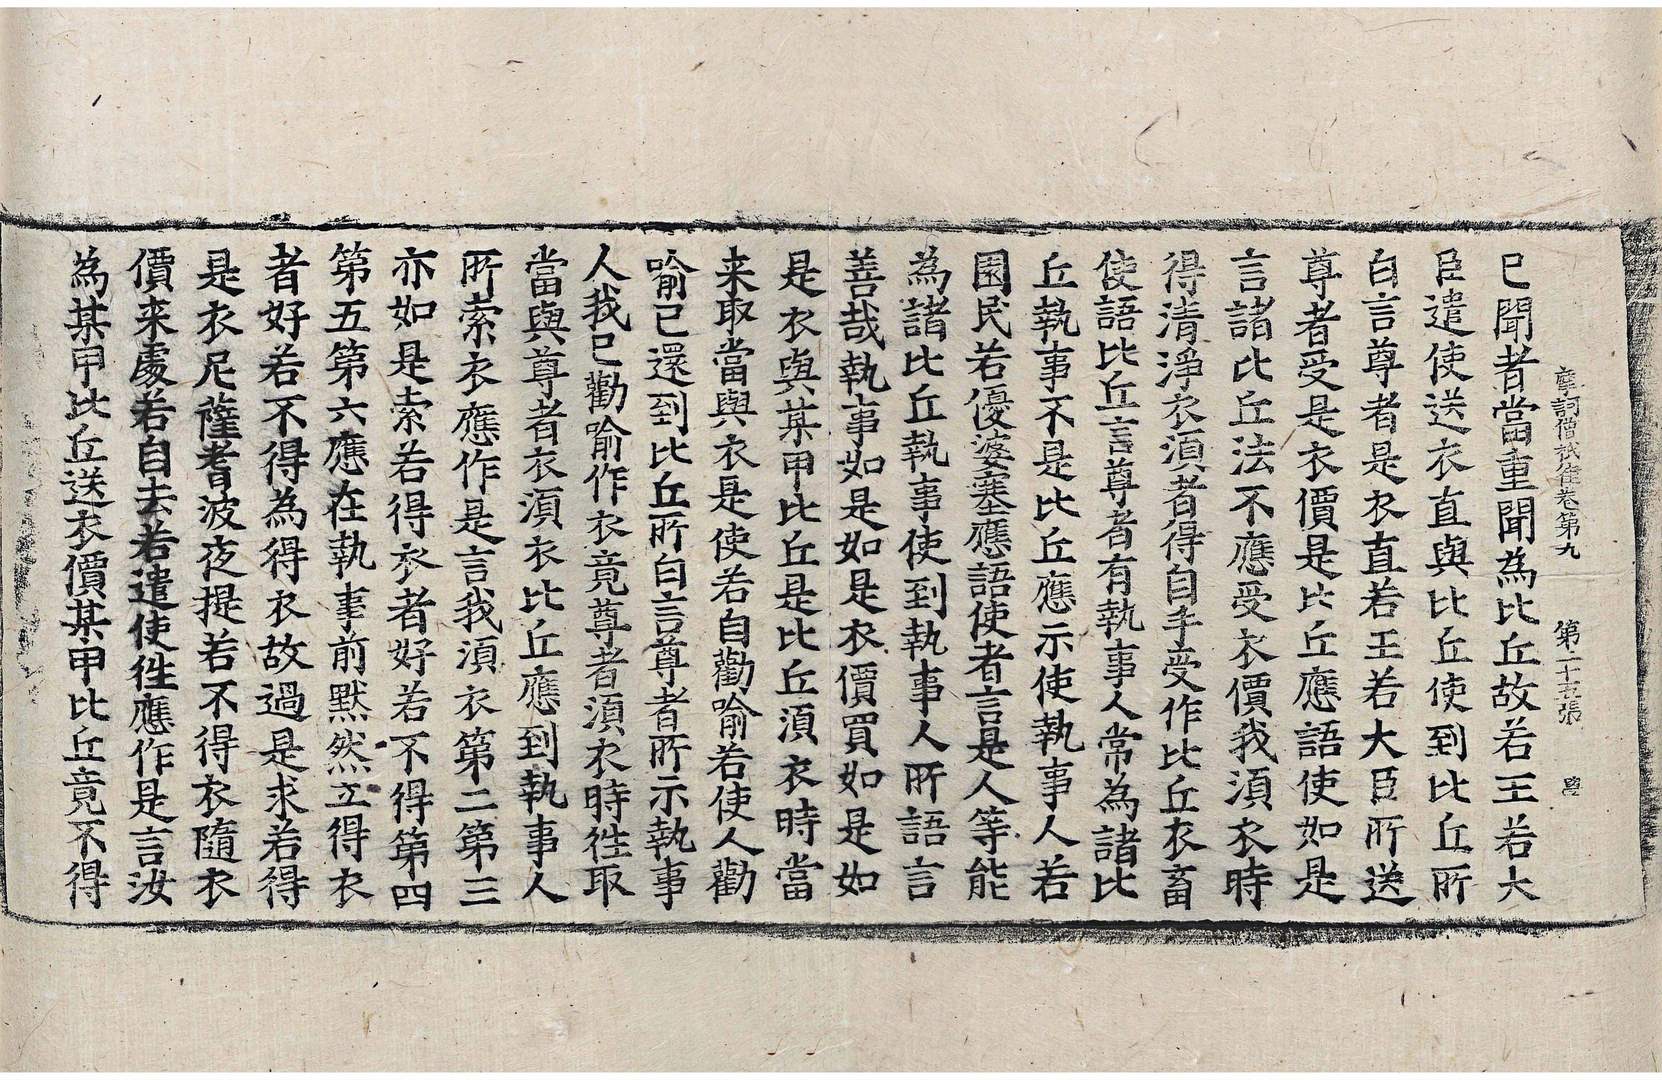 摩訶僧祇律卷第九 第二十五張
已聞者當重聞為比丘故若王若大
臣遣使送衣直與比丘使到比丘所
白言尊者是衣直若王若大臣所送
尊者受是衣價是比丘應語使如是
言諸比丘法不應受衣價我須衣時
得清淨衣須者得自手受作比丘衣畜
使語比丘言尊者有執事人常為諸比
丘執事不是比丘應示使執事人若
園民若優婆塞應語使者言是人等能
為諸比丘執事使到執事人所語言
善哉執事如是如是衣價買如是如
是衣與某甲比丘是比丘須衣時當
来取當與衣是使若自勸喻若使人勸
喻已還到比丘所白言尊者所示執事
人我已勸喻作衣竟尊者須衣時往取
當與尊者衣須衣比丘應到執事人
所索衣應作是言我須衣第二第三
亦如是索若得衣者好若不得第四
第五第六應在執事前默然立得衣
者好若不得為得衣故過是求若得
是衣尼薩耆波夜提若不得衣隨衣
價来處若自去若遣使往應作是言汝
為某甲比丘送衣價某甲比丘竟不得